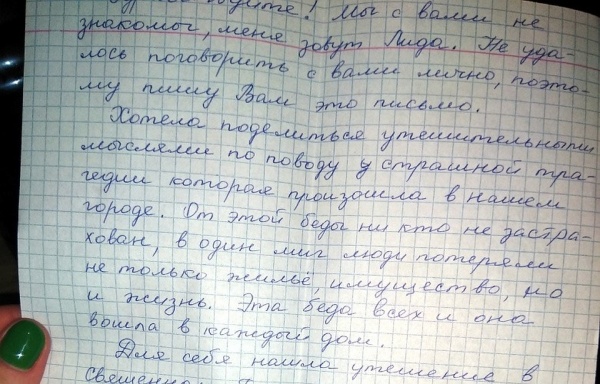 Мы с вами не
знакомы, меня зовут Лида. Не уда-
лось поговорить с вами лично, поэто-
му пишу Вам это письмо.
Хотела поделиться утешительными
мыслями по поводу у страшной тра-
гедии которая произошла в нашем
городе. От этой беды ни кто не застра-
хован, в один миг люди потеряли
не только жильё, имущество, но
и жизнь. Эта беда всех и она
вошла в каждый дом.
Для себя нашла утешение в